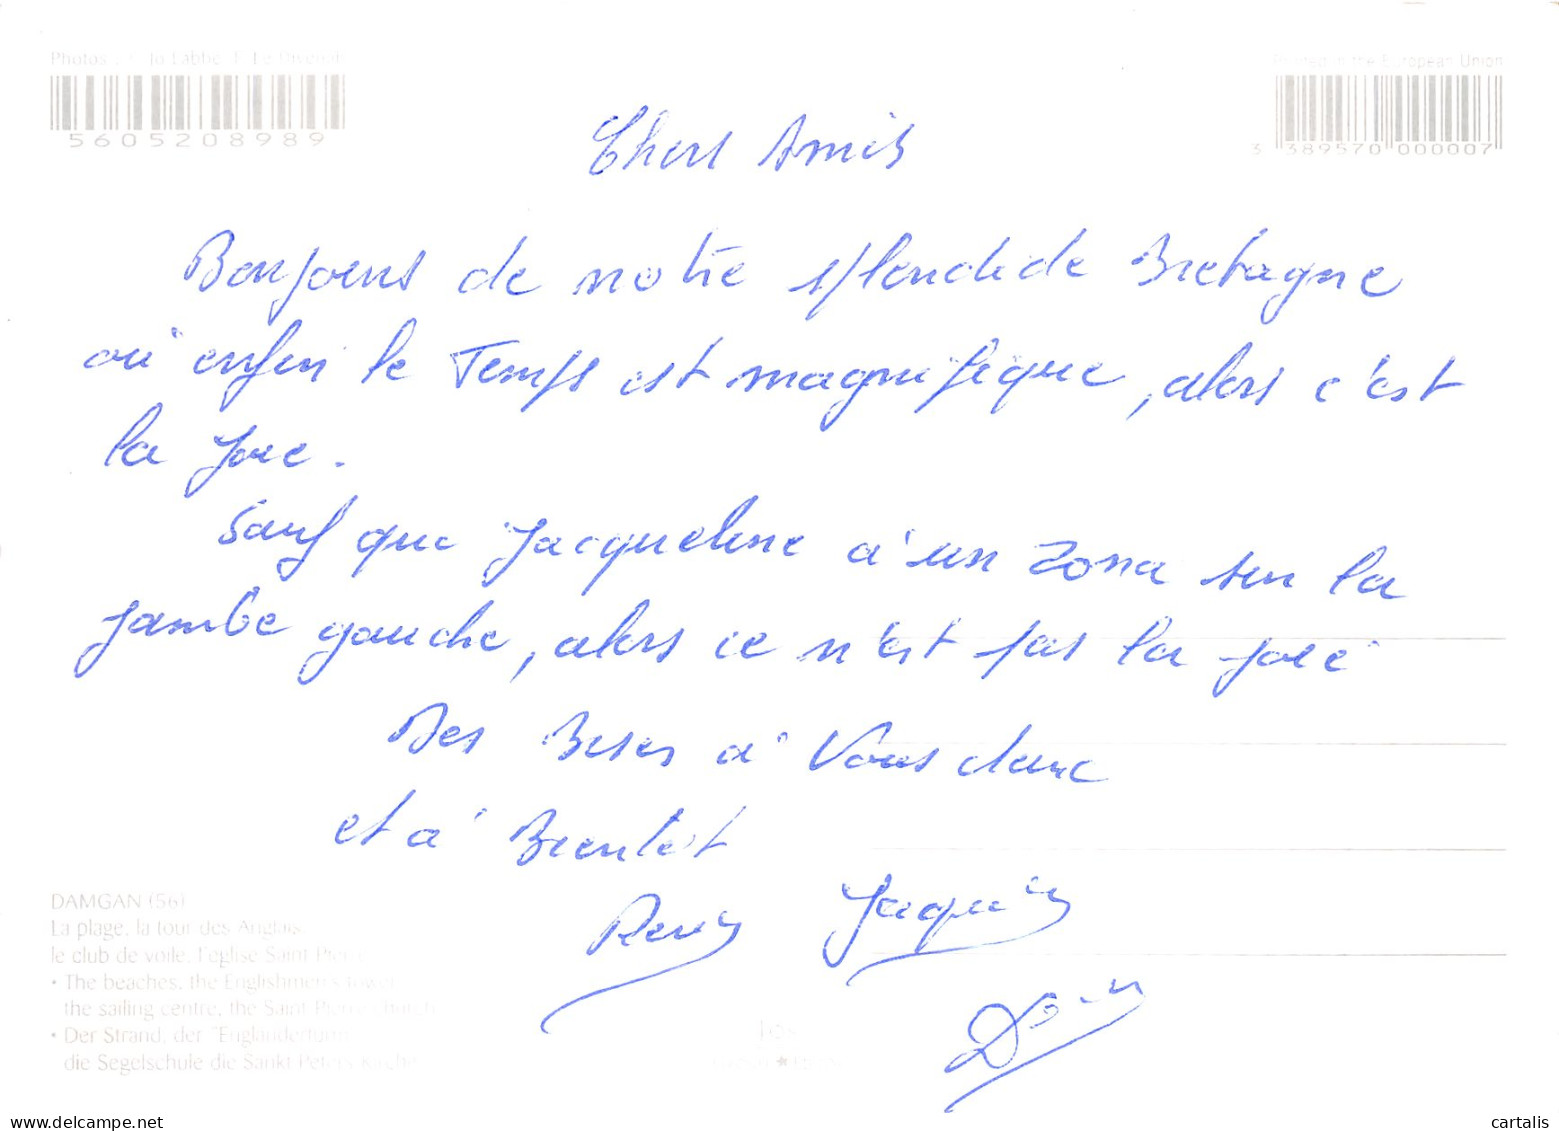 Photos : Jo Labbé
5605208989
Printed in the European Union
3 389570 000007
Chers Amis
Bonjours de notre splendide Bretagne
où enfin le Temps est magnifique, alors c'est
la joie.
Sauf que Jacqueline a un zona sur la
jambe gauche, alors ce n'est pas la joie
Des Bises à Vous deux
et à Bientôt
DAMGAN (56)
La plage, la tour des Anglais,
le club de voile, l'église Saint Pierre
• The beaches, the Englishmen's tower,
the sailing centre, the Saint Pierre church
• Der Strand, der "Engländerturm"
die Segelschule die Sankt Peters Kirche
Jos
delcampe.net
cartalis